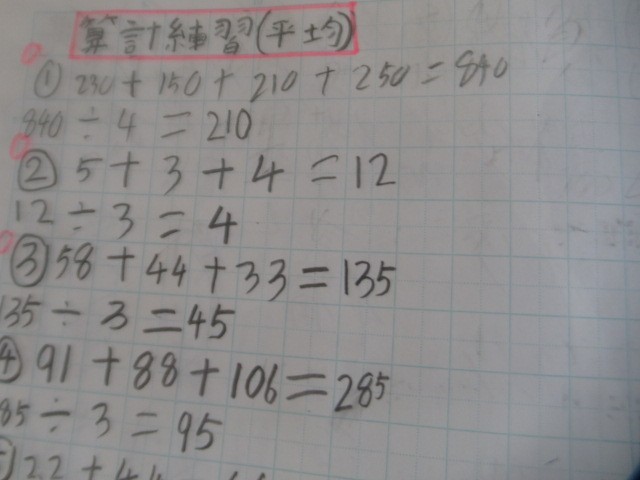 算計練習(平均)
① 230 + 150 + 210 + 250 = 840
840 ÷ 4 = 210
② 5 + 3 + 4 = 12
12 ÷ 3 = 4
③ 58 + 44 + 33 = 135
135 ÷ 3 = 45
④ 91 + 88 + 106 = 285
85 ÷ 3 = 95
22 + 44